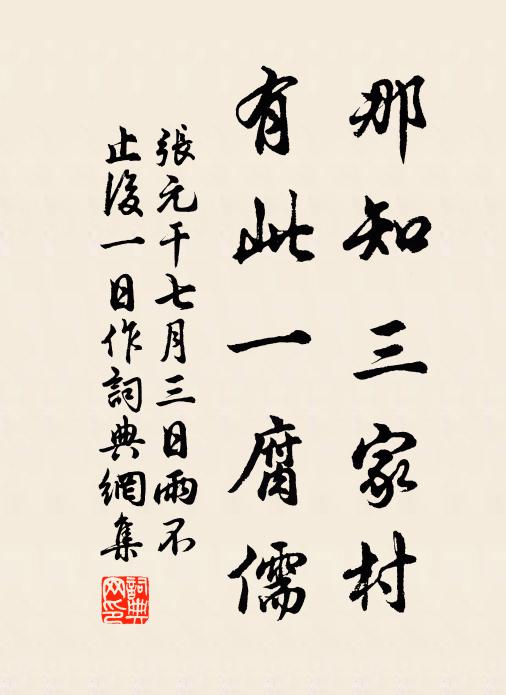 那知三家村
有此一腐儒
張元干七月三日雨不
止後一日作詞典網集
詞典網印